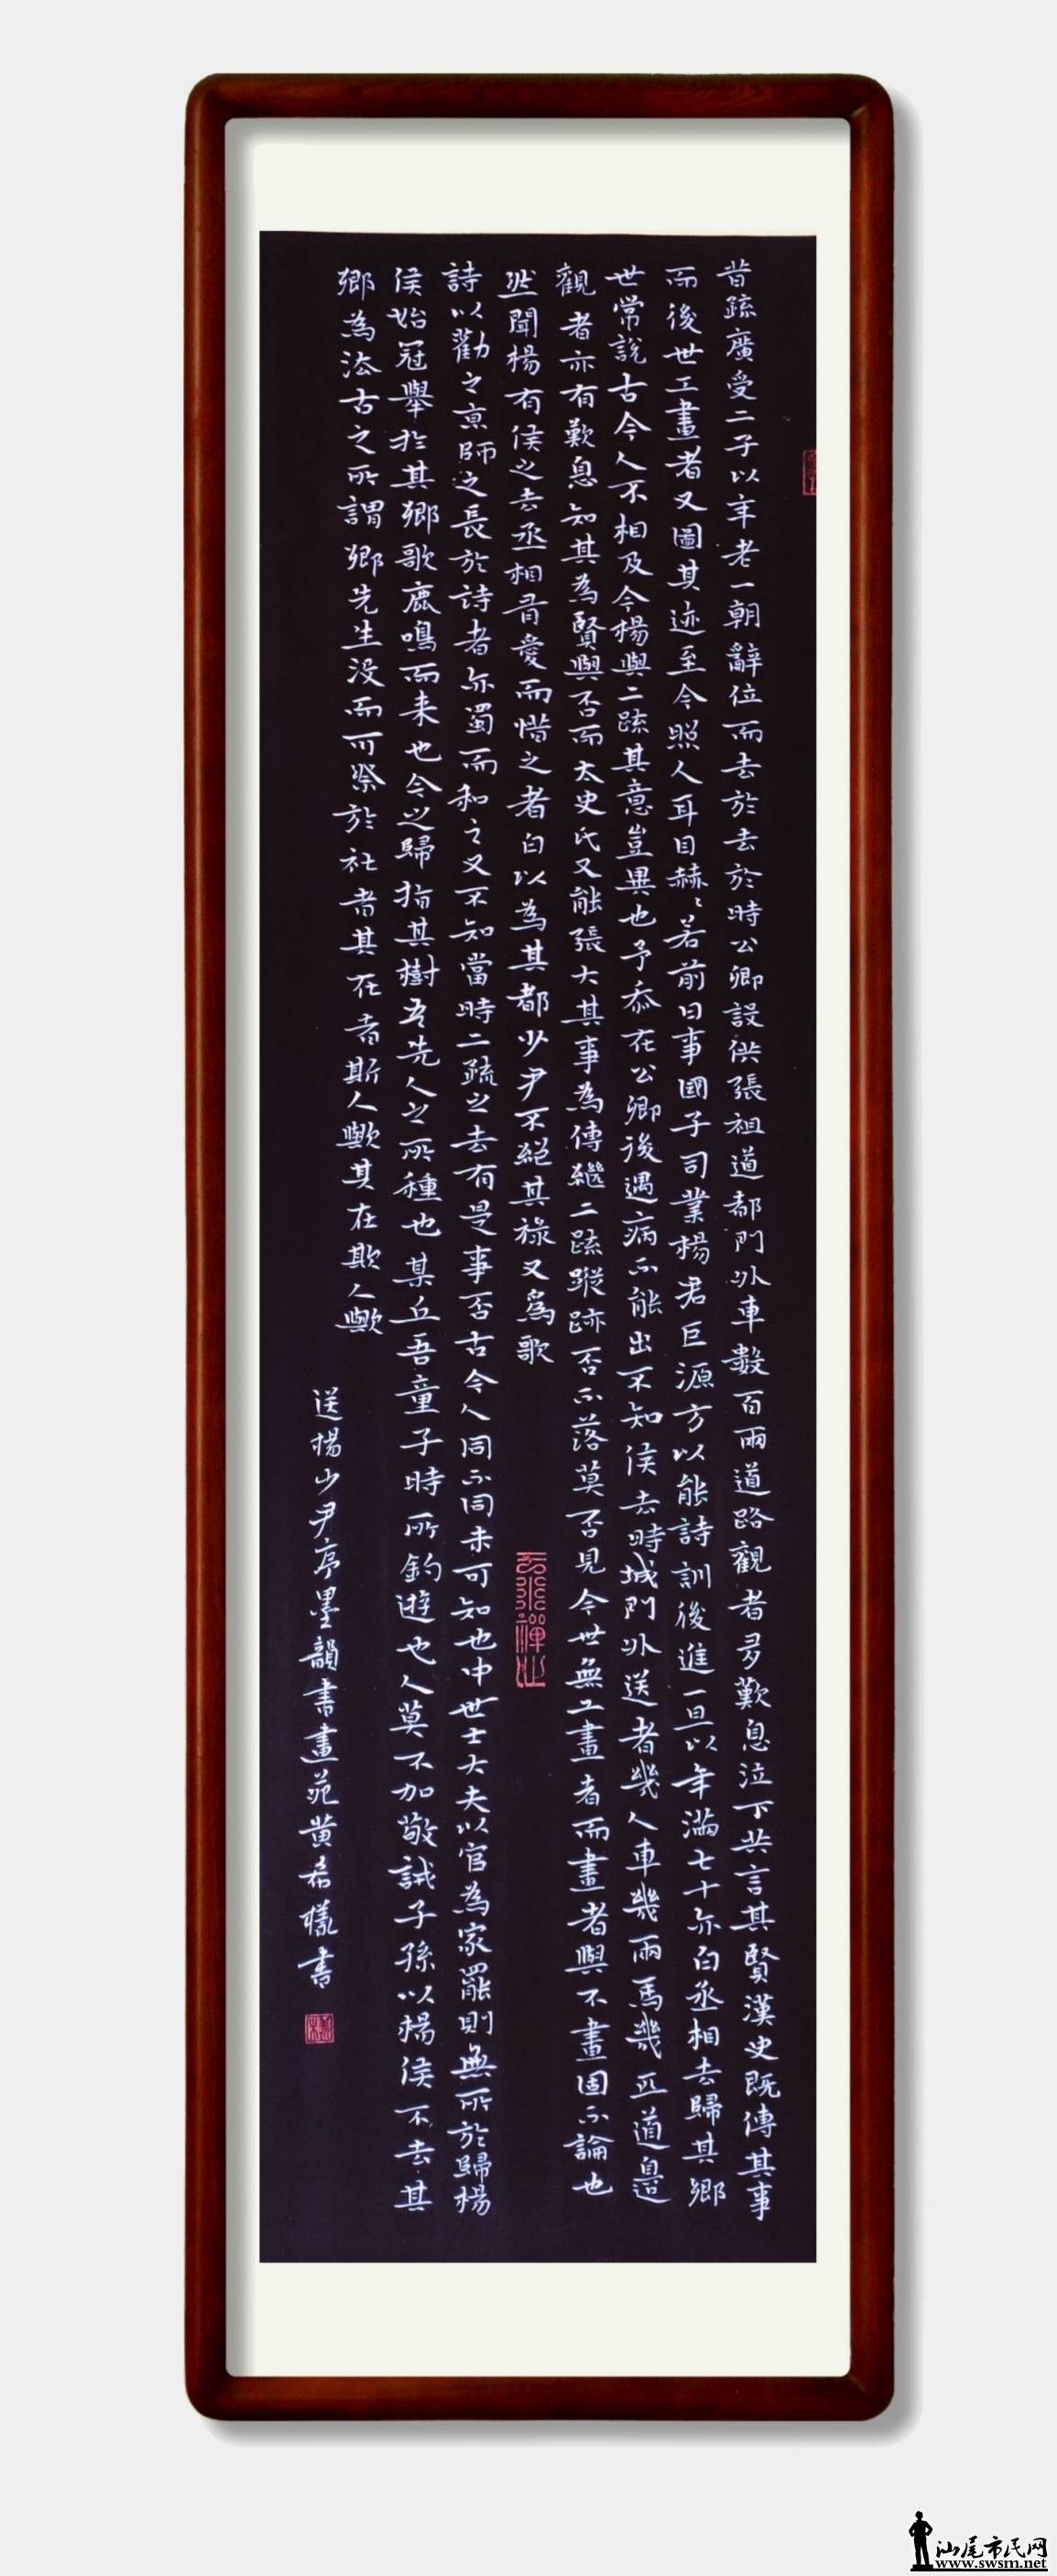 昔疏廣受二子以年老一朝辭位而去於去於時公卿設供張祖道都門外車數百兩道路觀者多歎息泣下共言其賢漢史既傳其事
而後世工畫者又圖其迹至今照人耳目赫〻若前日事國子司業楊君巨源方以能詩訓後進一旦以年滿七十亦白丞相去歸其鄉
世常說古今人不相及今楊與二疏其意豈異也予忝在公卿後遇病不能出不知侯去時城門外送者幾人車幾兩馬幾匹道邊
觀者亦有歎息知其為賢與否而太史氏又能張大其事為傳繼二疏蹤跡否不落莫否見今世無工畫者而畫者與不畫固不論也
然聞楊有侯之去丞相有愛而惜之者白以為其都少尹不絕其祿又為歌
詩以勸之京師之長於詩者亦屬而和之又不知當時二疏之去有是事否古今人同不同未可知也中世士大夫以官為家罷則無所於歸楊
侯始冠舉於其鄉歌鹿鳴而来也今之歸指其樹吾先人之所種也某丘吾童子時所釣遊也人莫不加敬誡子孫以楊侯不去其
鄉為法古之所謂鄉先生没而可祭於社者其在者斯人歟其在欺人歟
送楊少尹序墨韻書畫苑黄希樣書
汕尾市民网
www.swsm.net